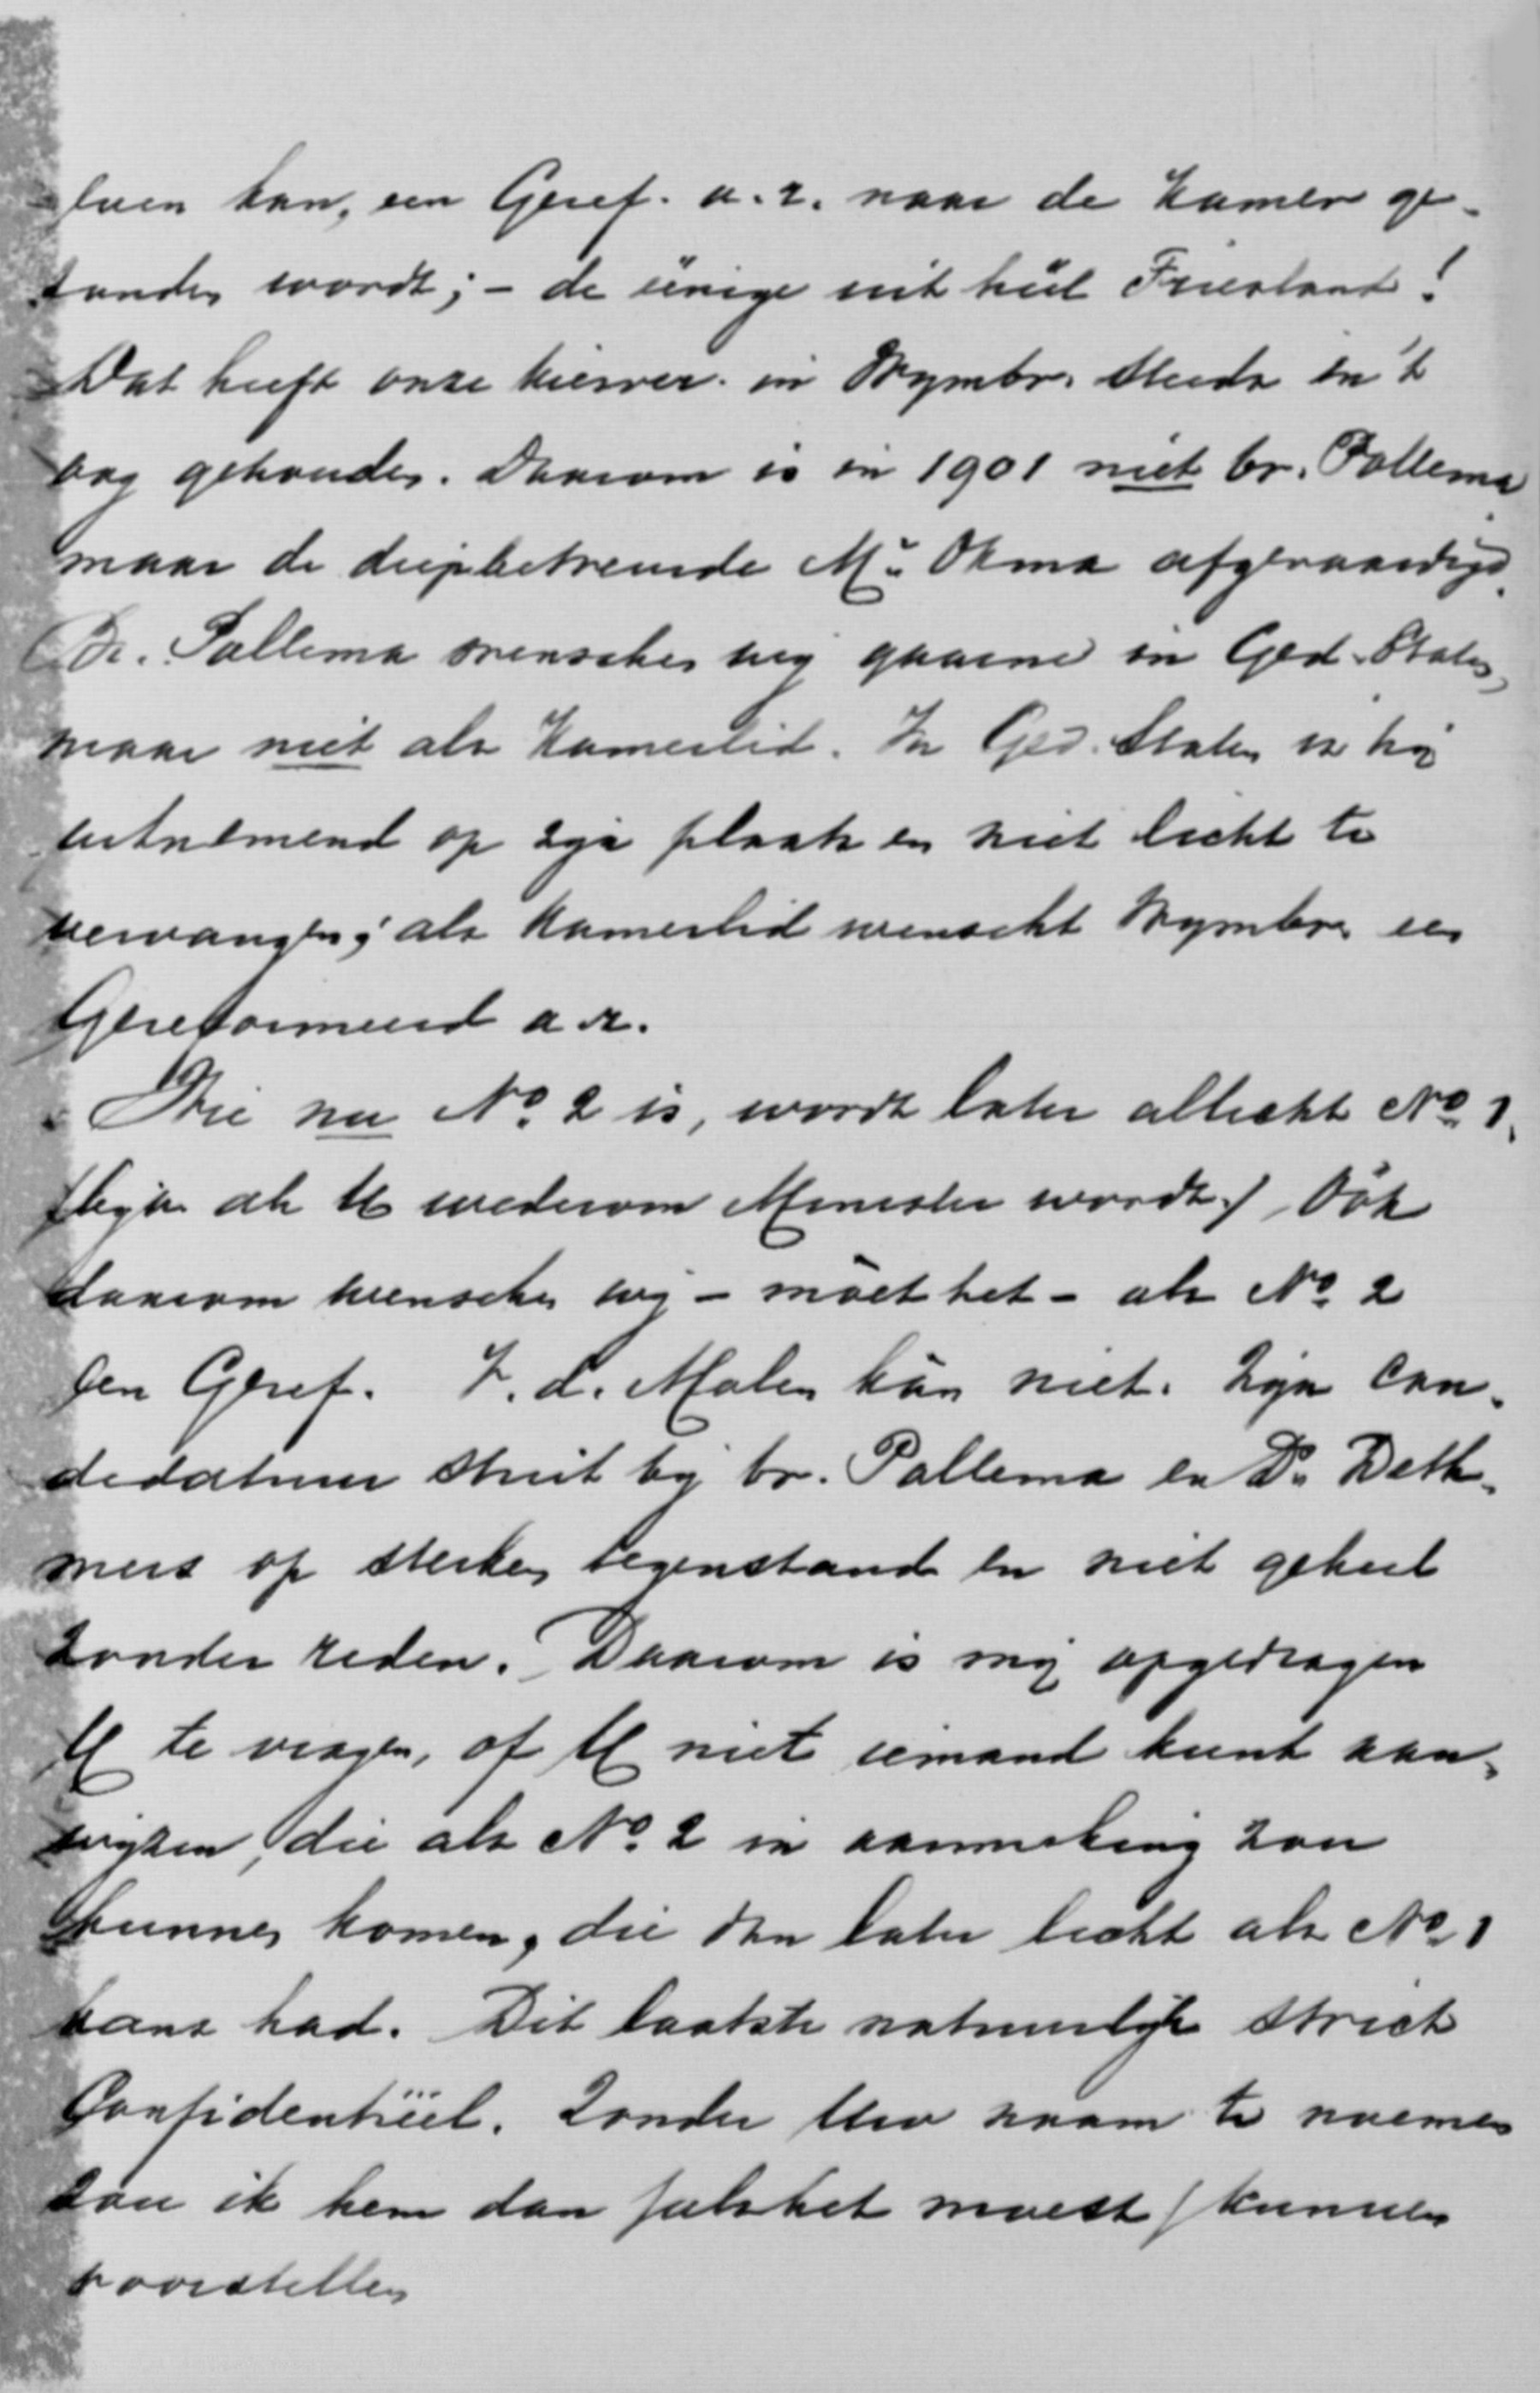 even kan, een Geref. a.r. naar de Kamer ge-
zonden wordt; - de éénige uit héél Friesland!
Dat heeft onze kiesver. in Wymbr. steeds in 't
oog gehouden. Daarom is in 1901 niet br. Pollema
maar de diepbetreurde Mr. Okma afgevaardigd.
Br. Pollema wenschen wij gaarne in Ged. Staten,
maar niet als Kamerlid. In Ged. Staten is hij
uitnemend op zijn plaats en niet licht te
vervangen; als Kamerlid wenscht Wymbr. een
Gereformeerd a.r.
Wie nu No. 2 is, wordt later allicht No. 1.
(bijv. als U wederom Minister wordt.) Oók
daarom wenschen wij - móet het - als No. 2
een Geref. V. d. Molen kàn niet. Zijn can-
didatuur stuit bij br. Pollema en Ds. Deth-
mers op sterken tegenstand en niet geheel
zonder reden. Daarom is mij opgedragen
U te vragen, of U niet iemand kunt aan-
wijzen, die als No. 2 in aanmerking zou
kunnen komen, die dan later licht als No. 1
kans had. Dit laatste natuurlijk strict
Confidentiëel. Zonder Uw naam te noemen
zou ik hem dan (als het moest) kunnen
voorstellen